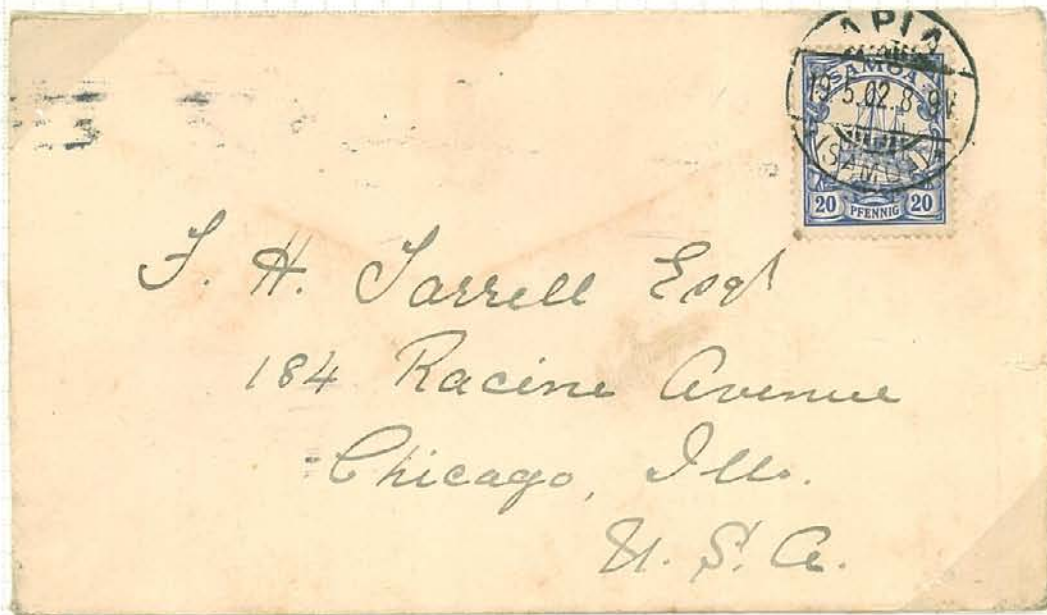 APIA
SAMOA
19.5.02.8-9V
(SAMOA)
20 PFENNIG 20
F. H. Farrell Esqr
184 Racine Avenue
Chicago, Ills.
U. S. A.